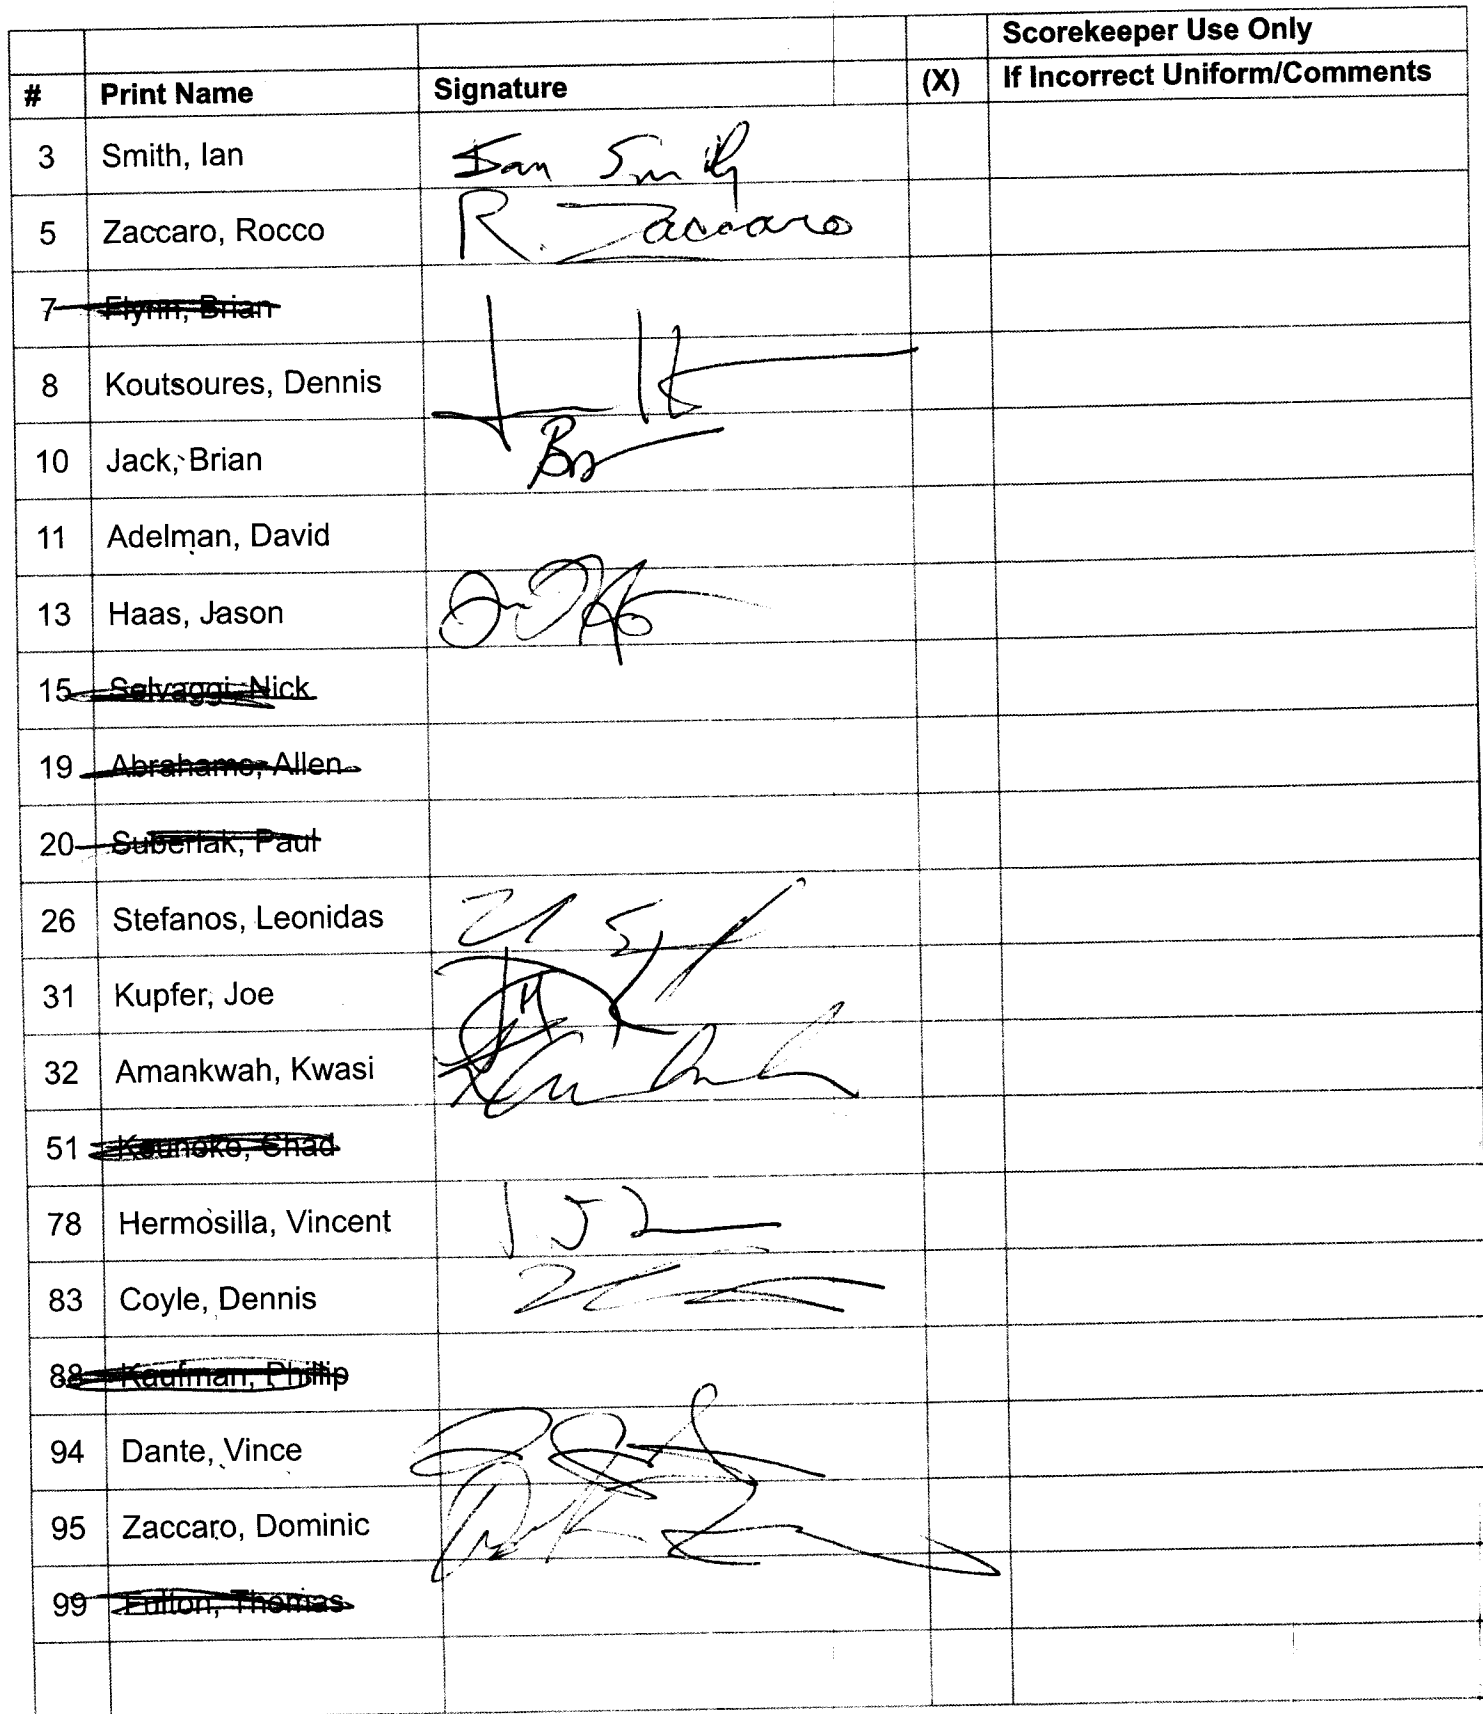 Scorekeeper Use Only
# Print Name Signature (X) If Incorrect Uniform/Comments
3 Smith, Ian Ian Smith
5 Zaccaro, Rocco R. Zaccaro
7 Flynn, Brian
8 Koutsoures, Dennis
10 Jack, Brian
11 Adelman, David
13 Haas, Jason
15 Selvaggi, Nick
19 Abrahams, Allen
20 Suberlak, Paul
26 Stefanos, Leonidas
31 Kupfer, Joe
32 Amankwah, Kwasi
51 Chad
78 Hermosilla, Vincent
83 Coyle, Dennis
88 Kaufman, Phillip
94 Dante, Vince
95 Zaccaro, Dominic
99 Fulton, Thomas